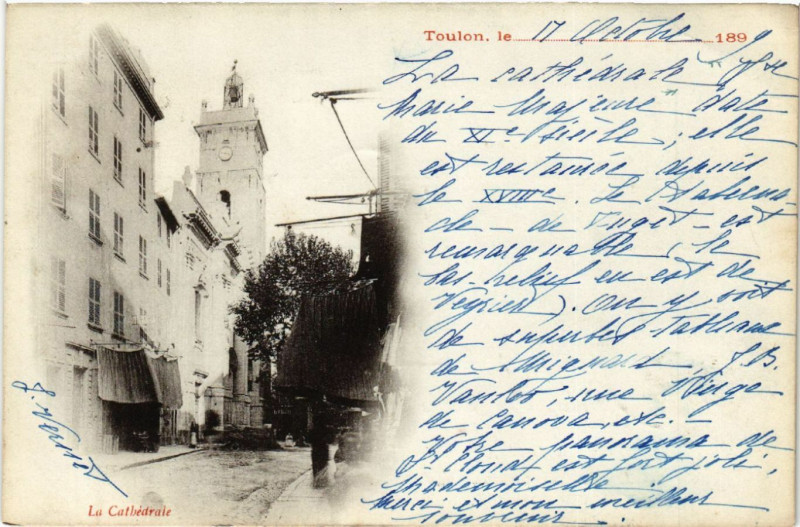 Toulon, le 17 Octobre 189
La cathédrale Ste
Marie Majeure date
du XIe siècle, elle
est restaurée depuis
le XVIIIe. Le Taberna-
cle - de Puget - est
remarquable (le
bas-relief en est de
Veyrier). On y voit
de superbes tableaux
de Mignard, J. B.
Vanloo, une Vierge
de Canova, etc. -
Votre panorama de
St Cloud est fort joli,
Mademoiselle.
Merci et mon meilleur
souvenir
La Cathédrale